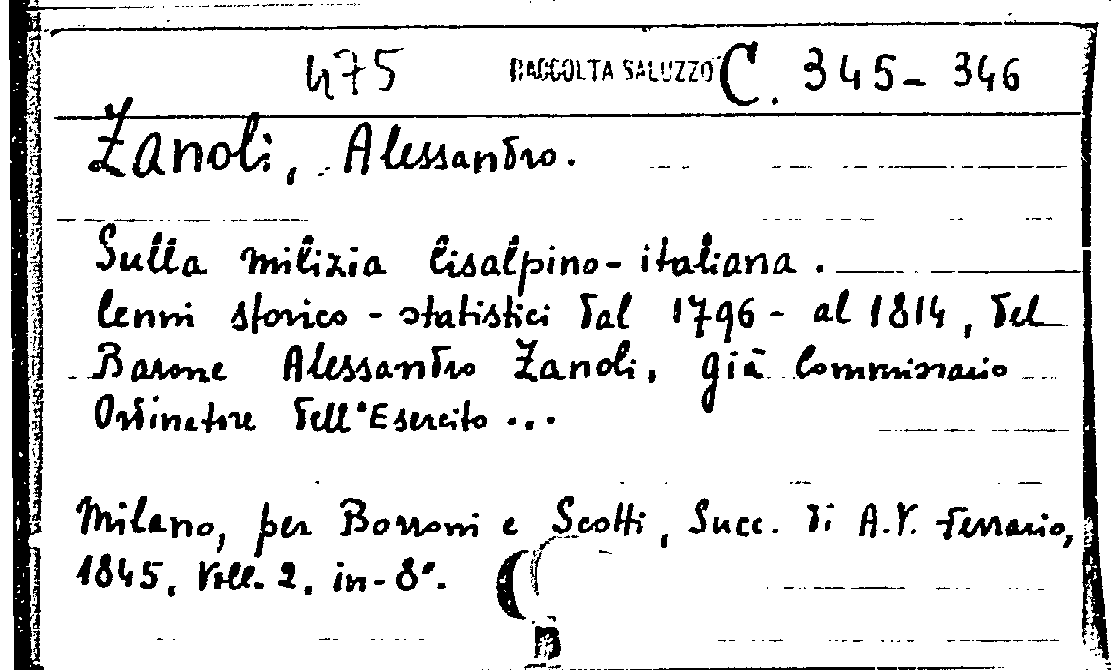 475 RACCOLTA SALUZZO C. 345-346
Zanoli, Alessandro.
Sulla milizia Cisalpino-italiana.
Cenni storico-statistici dal 1796- al 1814, del
Barone Alessandro Zanoli, già Commissario
Ordinatore dell'Esercito...
Milano, per Borroni e Scotti, Succ. di A.V. Ferrario,
1845. Voll. 2. in-8°.